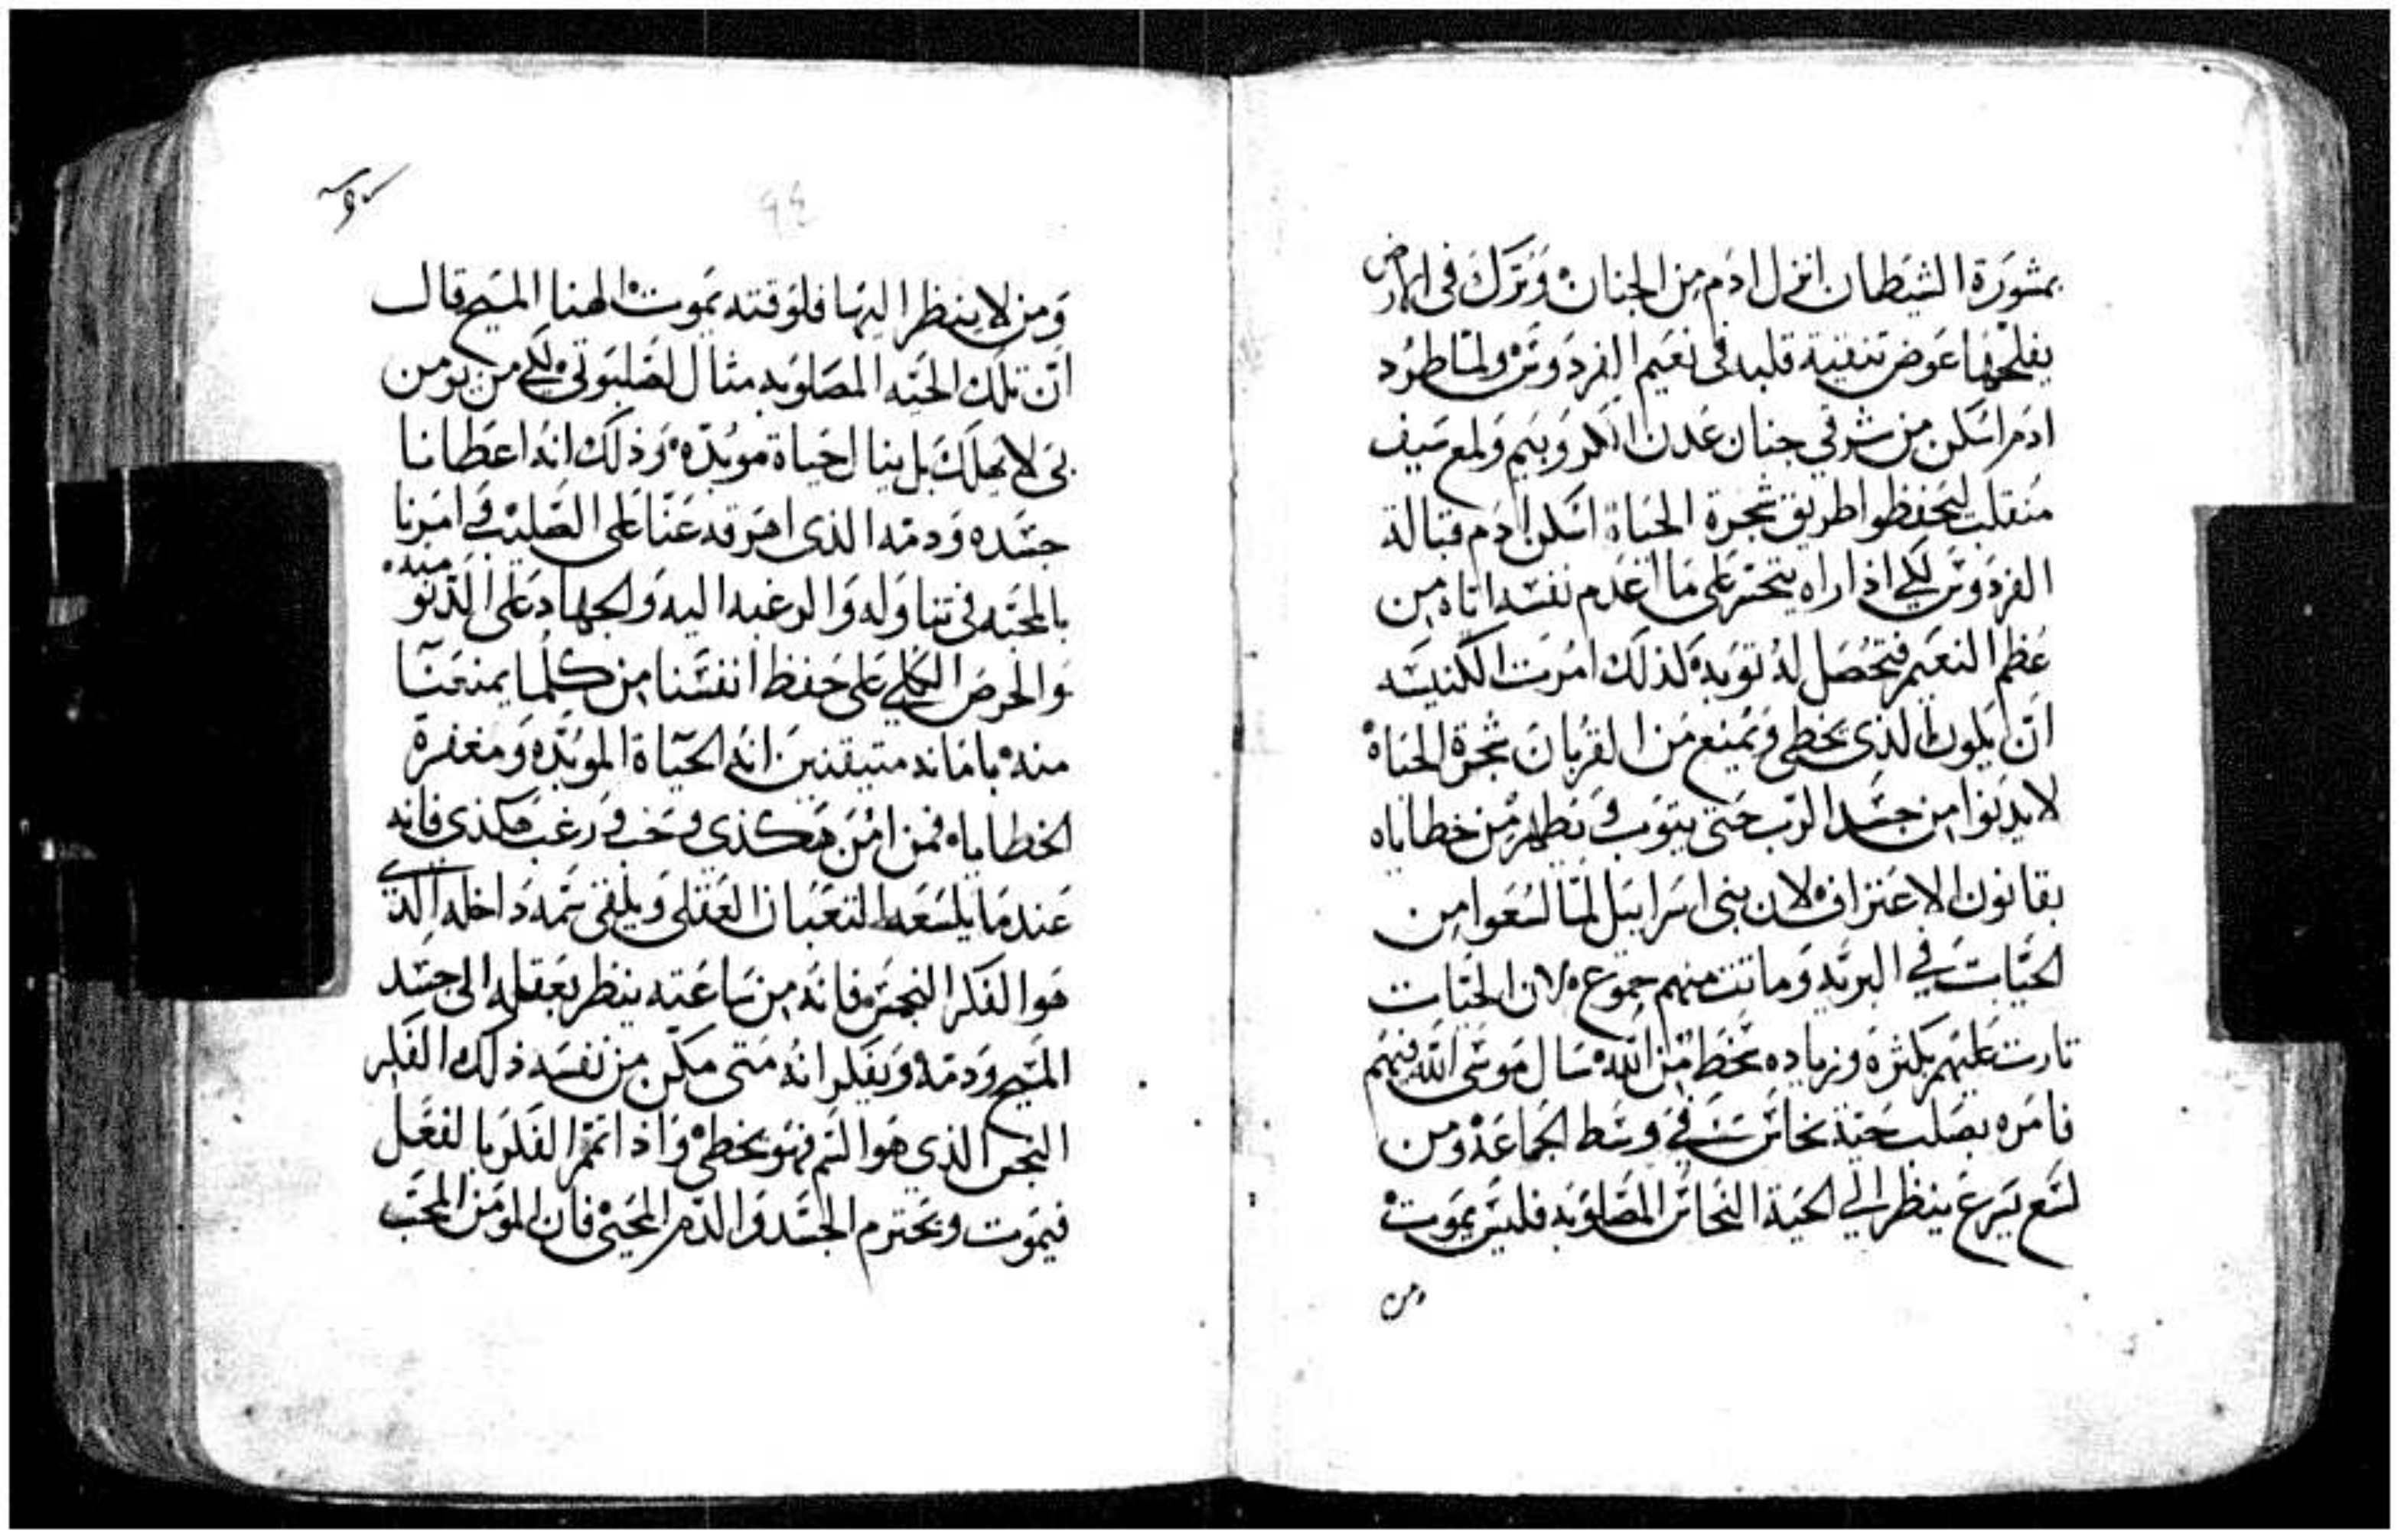 بمشورة الشيطان انزل ادم من الجنان وترك في الارض
يفلحها عوض تنقية قلبه في نعيم الفردوس ولما طرد
ادم اسكن من شرقي جنان عدن الكروبيم ولمع سيف
منقلب ليحفظوا طريق شجرة الحياة اسكن ادم قبالة
الفردوس لكي اذا راه يتحسر على ما اعدم نفسه اياه من
عظم النعيم فتحصل له توبه كذلك امرت الكنيسه
ان يكون الذي يخطي ويمنع من القربان شجرة الحياة
لا يدنوا من جسد الرب حتى يتوب ويطهر من خطاياه
بقانون الاعتراف لان بني اسراييل لما لسعوا من
الحيات في البريه وماتت منهم جموع لان الحيات
تارت عليهم بكثره وزياده بسخط من الله سال موسى الله فيهم
فامره بصلب حية نحاس في وسط الجماعة ومن
لسع يسرع ينظر الي الحية النحاس المصلوبه فليس يموت
ومن
٩٤
ومن لا ينظر اليها فلوقته يموت الهنا المسيح قال
ان تلك الحيه المصلوبه مثال لصلبوتي لكي من يومن
بي لا يهلك بل ينال حياة موبده وذلك انه اعطانا
جسده ودمه الذي اهرقه عنا على الصليب وامرنا
بالمحبه في تناوله والرغبه اليه والجهاد على الدنو منه
والحرص الكلي على حفظ انفسنا من كلما يمنعنا
منه بامانه متيقنين انه الحياة الموبده ومغفرة
الخطاياه فمن امن هكذي وحب ورغب هكذي فانه
عندما يلسعه التعبان العقلي ويلقي سمه داخله الذي
هو الفكر النجس فانه من ساعته ينظر بعقله الى جسد
المسيح ودمه ويفكر انه متى مكن من نفسه ذلك الفكر
النجس الذي هو السم فهو يخطي واذا تمم الفكر بالفعل
فيموت ويحترم الجسد والدم المحيي فان المومن المحب